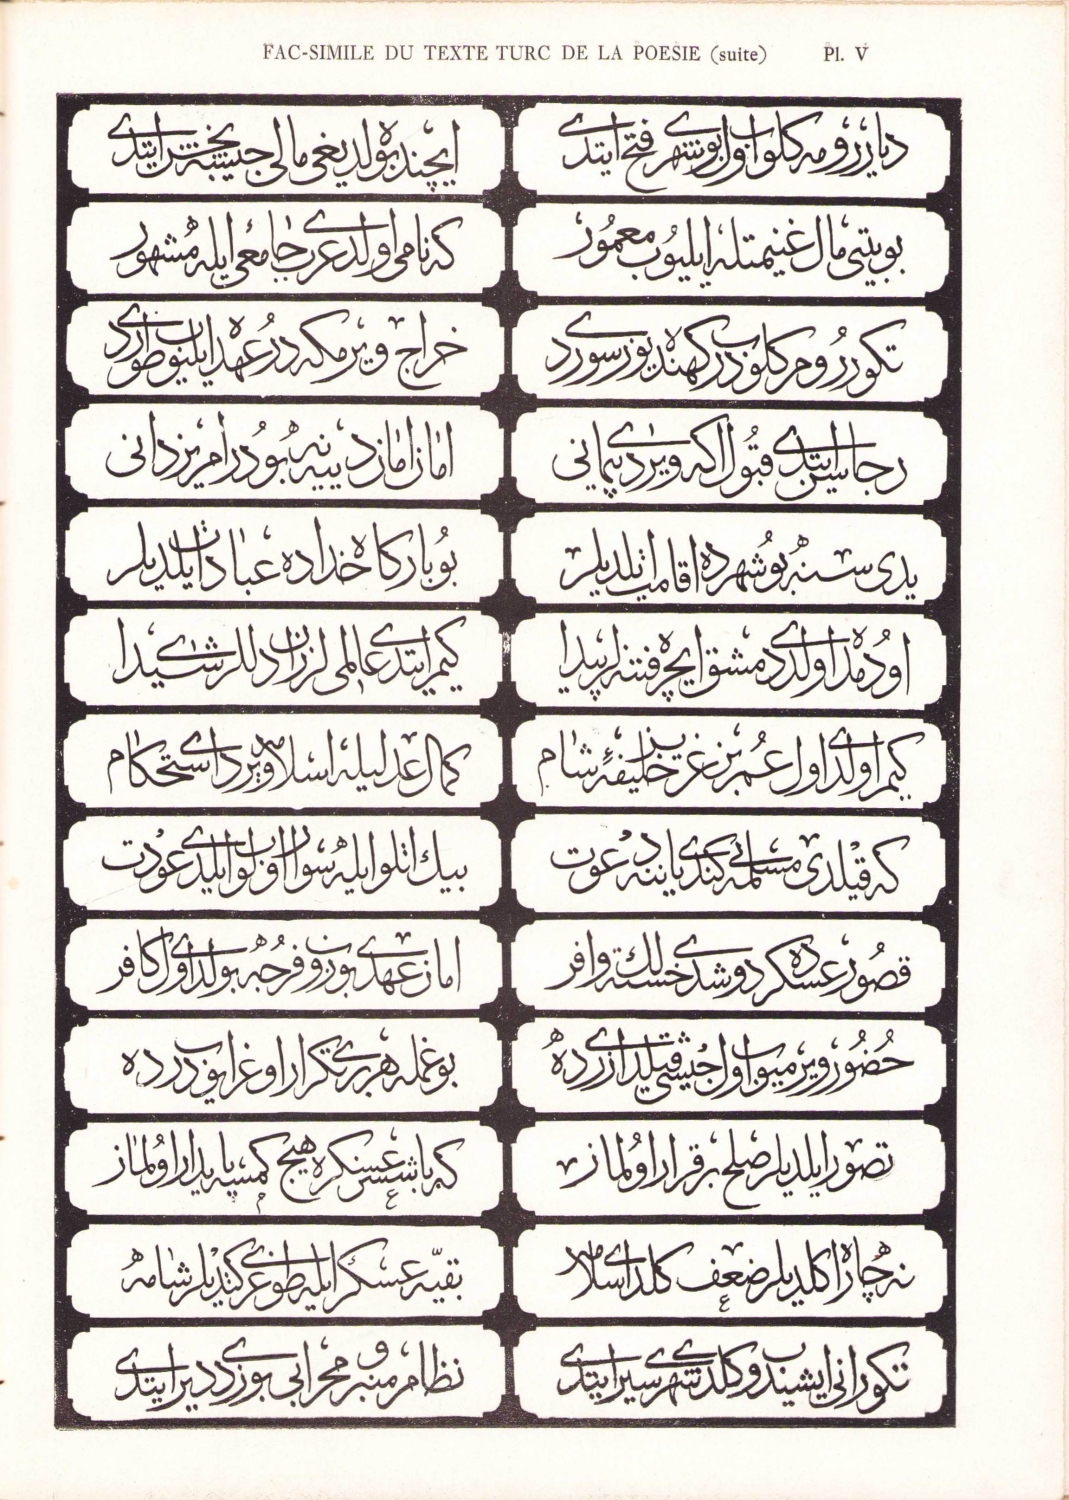 FAC-SIMILE DU TEXTE TURC DE LA POESIE (suite) Pl. V
ديار رومه كلوب اول بو شهری فتح ايتدی
ايچنده بولديغی مالی جيشه بخش ايتدی
بو بيتی مال غنيمتله ايليوب معمور
كه نامی اولدی عرب جامعی ايله مشهور
تكور روم كلوب دركهنه يوز سوردی
خراج ويرمكه در عهد ايليوب طوردی
رجاسن ايتدی قبول اكه ويردی پيمانی
امان امان ديينه بودر امر يزدانی
يدی سنه بو شهرده اقامت ايلديلر
بو باركاه خداده عبادت ايلديلر
اوده مده اولدی دمشق ايچره فتنه لر پيدا
كيم ايتدی عالمی لرزان دللر شيدا
كيم اولدی اول عمر بن عزيز خليفۀ شام
كمال عدليله اسلامه ويردی استحكام
كه قيلدی مسلمه كندی ياننه دعوت
بيك اتلو ايله سوار اولوب ايلدی عودت
قصور عسكره دوشدی خسته لك وافر
امان عهدی بوزوب فرجه بولدی اول كافر
حضور ويرميوب اول جيشی قيلدی ازرده
بو غمله هر بری تكرار اوغرايوب درده
تصور ايلديلر صلح برقرار اولماز
كه باشسز عسكره هيچ كمسه پايدار اولماز
نه چاره اكلديلر ضعف كلدی اسلامه
بقيه عسكر ايله طوغری كتديلر شامه
تكور انی ايشيدوب كلدی شهری سير ايتدی
نظام منبر و محرابی بوزدی دير ايتدی